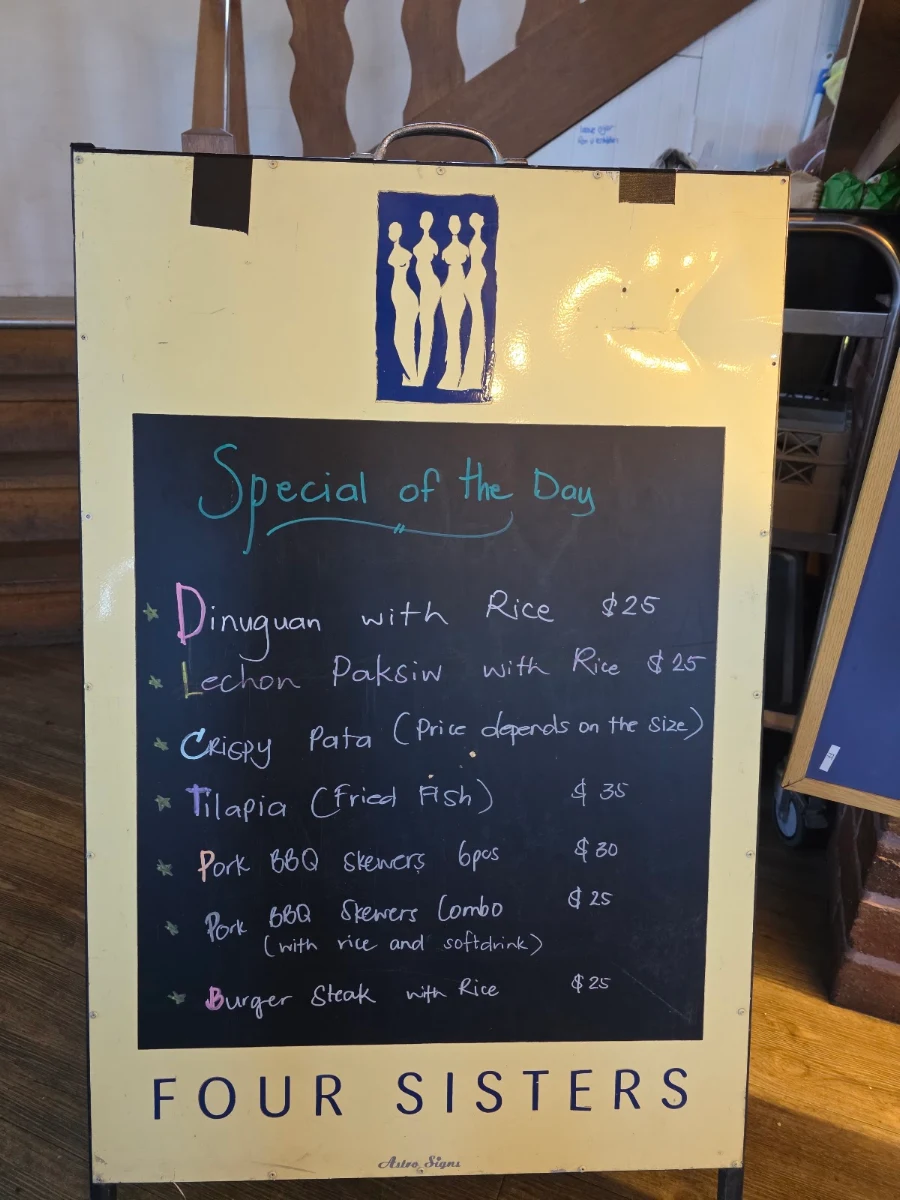 Special of the Day
Dinuguan with Rice $25
Lechon Paksiw with Rice $25
Crispy Pata (Price depends on the size)
Tilapia (Fried Fish) $35
Pork BBQ Skewers 6pcs $30
Pork BBQ Skewers Combo $25
(with rice and softdrink)
Burger Steak with Rice $25
FOUR SISTERS
Astro Signs